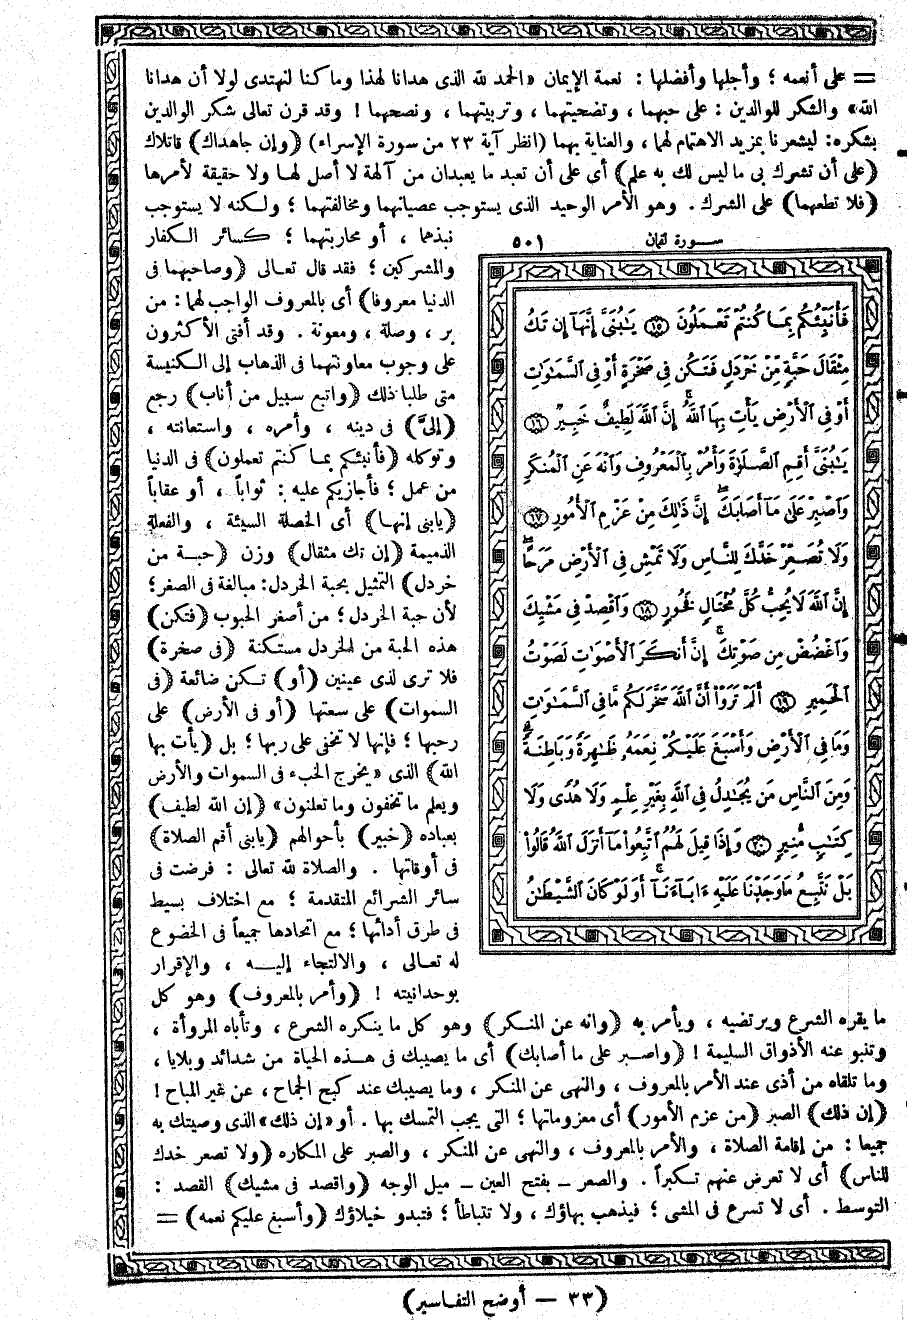 = على أنعمه ؛ وأجلها وأفضلها : نعمة الإيمان «الحمد لله الذى هدانا لهذا وما كنا لنهتدى لولا أن هدانا
الله» والشكر للوالدين : على حبهما ، وتضحيتهما ، وتربيتهما ، ونصحهما ! وقد قرن تعالى شكر الوالدين
بشكره : ليشعرنا بمزيد الاهتمام لهما ، والعناية بهما (انظر آية ٢٣ من سورة الإسراء) (وإن جاهداك) قاتلاك
(على أن تشرك بى ما ليس لك به علم) أى على أن تعبد ما يعبدان من آلهة لا أصل لها ولا حقيقة لأمرها
(فلا تطعهما) على الشرك . وهو الأمر الوحيد الذى يستوجب عصيانهما ومخالفتهما ؛ ولكنه لا يستوجب
نبذهما ، أو محاربتهما ؛ كسائر الكفار
والمشركين ؛ فقد قال تعالى (وصاحبهما فى
الدنيا معروفا) أى بالمعروف الواجب لهما : من
بر ، وصلة ، ومعونة . وقد أفتى الأكثرون
على وجوب معاونتهما فى الذهاب إلى الكنيسة
متى طلبا ذلك (واتبع سبيل من أناب) رجع
(إلىَّ) فى دينه ، وأمره ، واستعانته ،
وتوكله (فأنبئكم بما كنتم تعملون) فى الدنيا
من عمل ؛ فأجازيكم عليه : ثواباً ، أو عقاباً
(يابنى إنها) أى الخصلة السيئة ، والفعلة
الذميمة (إن تك مثقال) وزن (حبة من
خردل) التمثيل بحبة الخردل : مبالغة فى الصغر ؛
لأن حبة الخردل ؛ من أصغر الحبوب (فتكن)
هذه الحبة من الخردل مستكنة (فى صخرة)
فلا ترى لذى عينين (أو) تكن ضائعة (فى
السموات) على سعتها (أو فى الأرض) على
رحبها ؛ فإنها لا تخفى على ربها ؛ بل (يأت بها
الله) الذى «يخرج الخبء فى السموات والأرض
ويعلم ما تخفون وما تعلنون» (إن الله لطيف)
بعباده (خبير) بأحوالهم (يابنى أقم الصلاة)
فى أوقاتها . والصلاة لله تعالى : فرضت فى
سائر الشرائع المتقدمة ؛ مع اختلاف بسيط
فى طرق أدائها ؛ مع اتحادها جميعاً فى الخضوع
له تعالى ، والالتجاء إليه ، والإقرار
بوحدانيته ! (وأمر بالمعروف) وهو كل
سورة لقمان ٥٠١
فَأُنَبِّئُكُم بِمَا كُنتُمْ تَعْمَلُونَ ١٥ يَـٰبُنَىَّ إِنَّهَآ إِن تَكُ
مِثْقَالَ حَبَّةٍ مِّنْ خَرْدَلٍ فَتَكُن فِى صَخْرَةٍ أَوْ فِى السَّمَـٰوَٰتِ
أَوْ فِى الْأَرْضِ يَأْتِ بِهَا اللَّهُ إِنَّ اللَّهَ لَطِيفٌ خَبِيرٌ ١٦
يَـٰبُنَىَّ أَقِمِ الصَّلَوٰةَ وَأْمُرْ بِالْمَعْرُوفِ وَانْهَ عَنِ الْمُنكَرِ
وَاصْبِرْ عَلَىٰ مَآ أَصَابَكَ إِنَّ ذَٰلِكَ مِنْ عَزْمِ الْأُمُورِ ١٧
وَلَا تُصَعِّرْ خَدَّكَ لِلنَّاسِ وَلَا تَمْشِ فِى الْأَرْضِ مَرَحًا
إِنَّ اللَّهَ لَا يُحِبُّ كُلَّ مُخْتَالٍ فَخُورٍ ١٨ وَاقْصِدْ فِى مَشْيِكَ
وَاغْضُضْ مِن صَوْتِكَ إِنَّ أَنكَرَ الْأَصْوَٰتِ لَصَوْتُ
الْحَمِيرِ ١٩ أَلَمْ تَرَوْا أَنَّ اللَّهَ سَخَّرَ لَكُم مَّا فِى السَّمَـٰوَٰتِ
وَمَا فِى الْأَرْضِ وَأَسْبَغَ عَلَيْكُمْ نِعَمَهُۥ ظَـٰهِرَةً وَبَاطِنَةً
وَمِنَ النَّاسِ مَن يُجَـٰدِلُ فِى اللَّهِ بِغَيْرِ عِلْمٍ وَلَا هُدًى وَلَا
كِتَـٰبٍ مُّنِيرٍ ٢٠ وَإِذَا قِيلَ لَهُمُ اتَّبِعُوا مَآ أَنزَلَ اللَّهُ قَالُوا
بَلْ نَتَّبِعُ مَا وَجَدْنَا عَلَيْهِ ءَابَآءَنَآ أَوَلَوْ كَانَ الشَّيْطَـٰنُ
ما يقره الشرع ويرتضيه ، ويأمر به (وانه عن المنكر) وهو كل ما ينكره الشرع ، وتأباه المروأة ،
وتنبو عنه الأذواق السليمة ! (واصبر على ما أصابك) أى ما يصيبك فى هذه الحياة من شدائد وبلايا ،
وما تلقاه من أذى عند الأمر بالمعروف ، والنهى عن المنكر ، وما يصيبك عند كبح الجماح ، عن غير المباح !
(إن ذلك) الصبر (من عزم الأمور) أى معزوماتها ؛ التى يجب التمسك بها . أو «إن ذلك» الذى وصيتك به
جميعا : من إقامة الصلاة ، والأمر بالمعروف ، والنهى عن المنكر ، والصبر على المكاره (ولا تصعر خدك
للناس) أى لا تعرض عنهم تكبراً . والصعر ــ بفتح العين ــ ميل الوجه (واقصد فى مشيك) القصد :
التوسط . أى لا تسرع فى المشى ؛ فيذهب بهاؤك ، ولا تتباطأ ؛ فتبدو خيلاؤك (وأسبغ عليكم نعمه) =
(٣٣ — أوضح التفاسير)